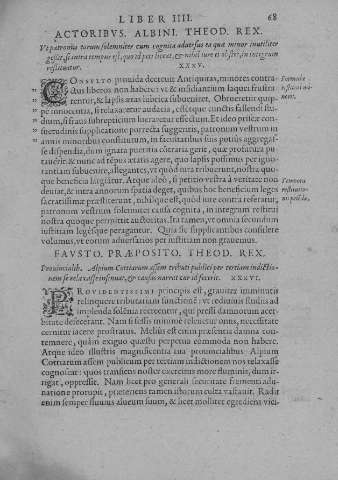 LIBER IIII. 68
ACTORIBVS. ALBINI. THEOD. REX.
Vt patroniis eorum solemniter cum cognita aduersus ea quæ minor inutiliter
gessit, si intra tempus est, quo id peti licet, & nihil iure ei obstet, in integrum
restituatur. XXXV.
CONSVLTO prouida decreuit Antiquitas, minores contra-
ctus liberos non habere: vt & insidiantium laquei frustra-
rentur, & lapsis ætas lubrica subueniret. Obtineretur quip-
pe innocentes, si relaxaretur audacia, essetque cunctis fallendi stu-
dium, si fraus subrepticium sortiretur effectum. Et ideo præsce con-
suetudinis supplicatione porrecta suggeritis, patronum vestrum in
annis minoribus constitutum, in facultatibus suis potius aggregas-
se dispendia, dum ignara pueritia contraria gerit, quæ profutura pu-
tauerit: & nunc ad repus ætatis agere, quo lapsis possimus per igno-
rantiam subuenire, allegantes, vt quod iura tribuerunt, nostra quo-
que beneficia largiantur. Atque ideo, si petitio vestra à veritate non
deuiat, & intra annorum spatia deget, quibus hoc beneficium leges
sacratissimæ præstiterunt, nihilque est, quod iure contra referatur,
patronum vestrum solemniter causa cognita, in integrum restitui
nostra quoque permittit auctoritas. Ita tamen, vt omnia secundum
iustitiam legésque peragantur. Quia sic supplicantibus consulere
volumus, vt eorum aduersarios per iustitiam non grauemus.
Formula
restitutionis
Tempora
restitutio-
ni petēdæ
FAVSTO. PRÆPOSITO. THEOD. REX.
Prouincialib. Alpium Cottiarum assem tributi publici per tertiam indictio-
nem se relaxasse insinuet, & causas narret cur id facerit. XXXVI.
PROVIDENTISSIMI principis est, grauiter imminutis
relinquere tributariam functionē: vt redintius studiis ad
implenda solēnia recreentur, qui pressi damnorum acer-
bitate defecerant. Nam si fessis minimè releuetur onus, necessitate
cernitur iacere prostratus. Melius est enim præsentia damna con-
temnere, quàm exiguo quæstu perpetua commoda non habere.
Atque ideo illustris magnificentia tua prouincialibus Alpium
Cottiarum assem publicum per tertiam indictionem nos relaxasse
cognoscat: quos transiens noster exercitus more fluminis, dum ir-
rigat, oppressit. Nam licet pro generali securitate frementi adu-
natione proruperit, præteriens tamen istorum culta vastauit. Radit
enim semper fluuius alueum suum, & licet molliter egrediens vici-